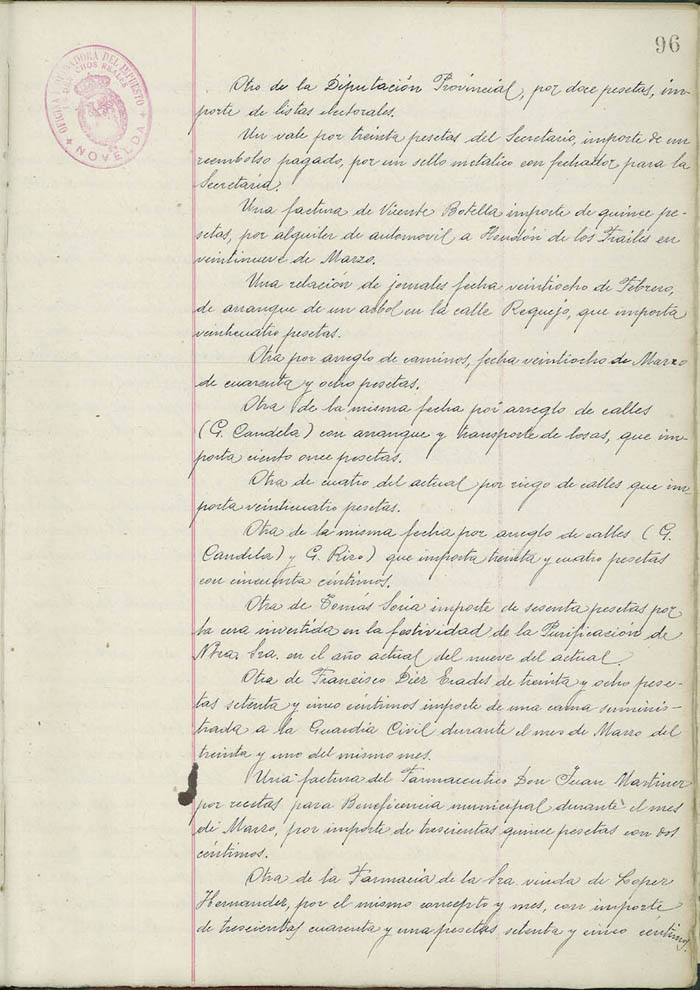 96
OFICINA LIQUIDADORA DEL IMPUESTO
DE DERECHOS REALES
NOVELDA
Otro de la Diputación Provincial, por doce pesetas, im-
porte de listas electorales.
Un vale por treinta pesetas del Secretario, importe de un
reembolso pagado, por un sello metalico con fechador para la
Secretaría.
Una factura de Vicente Botella importe de quince pe-
setas, por alquiler de automovil a Hondón de los Frailes en
veintinueve de Marzo.
Una relación de jornales fecha veintiocho de Febrero,
de arranque de un arbol en la calle Requejo, que importa
veinticuatro pesetas.
Otra por arreglo de caminos, fecha veintiocho de Marzo
de cuarenta y ocho pesetas.
Otra de la misma fecha por arreglo de calles
(G. Candela) con arranque y transporte de losas, que im-
porta ciento once pesetas.
Otra de cuatro del actual por riego de calles que im
porta veinticuatro pesetas.
Otra de la misma fecha por arreglo de calles (G.
Candela) y G. Rizo) que importa treinta y cuatro pesetas
con cincuenta céntimos.
Otra de Tomás Soria importe de sesenta pesetas por
la cera invertida en la festividad de la Purificación de
Ntra. Sra. en el año actual del nueve del actual.
Otra de Francisco Diez de treinta y ocho pese-
tas setenta y cinco céntimos importe de una cama suminis-
trada a la Guardia Civil durante el mes de Marzo del
treinta y uno del mismo mes.
Una factura del Farmaceutico Don Juan Martinez
por recetas para Beneficencia municipal durante el mes
de Marzo, por importe de trescientas quince pesetas con dos
céntimos.
Otra de la Farmacia de la Sra. viuda de Lopez
Hernandez, por el mismo concepto y mes, con importe
de trescientas cuarenta y una pesetas setenta y cinco centimos.